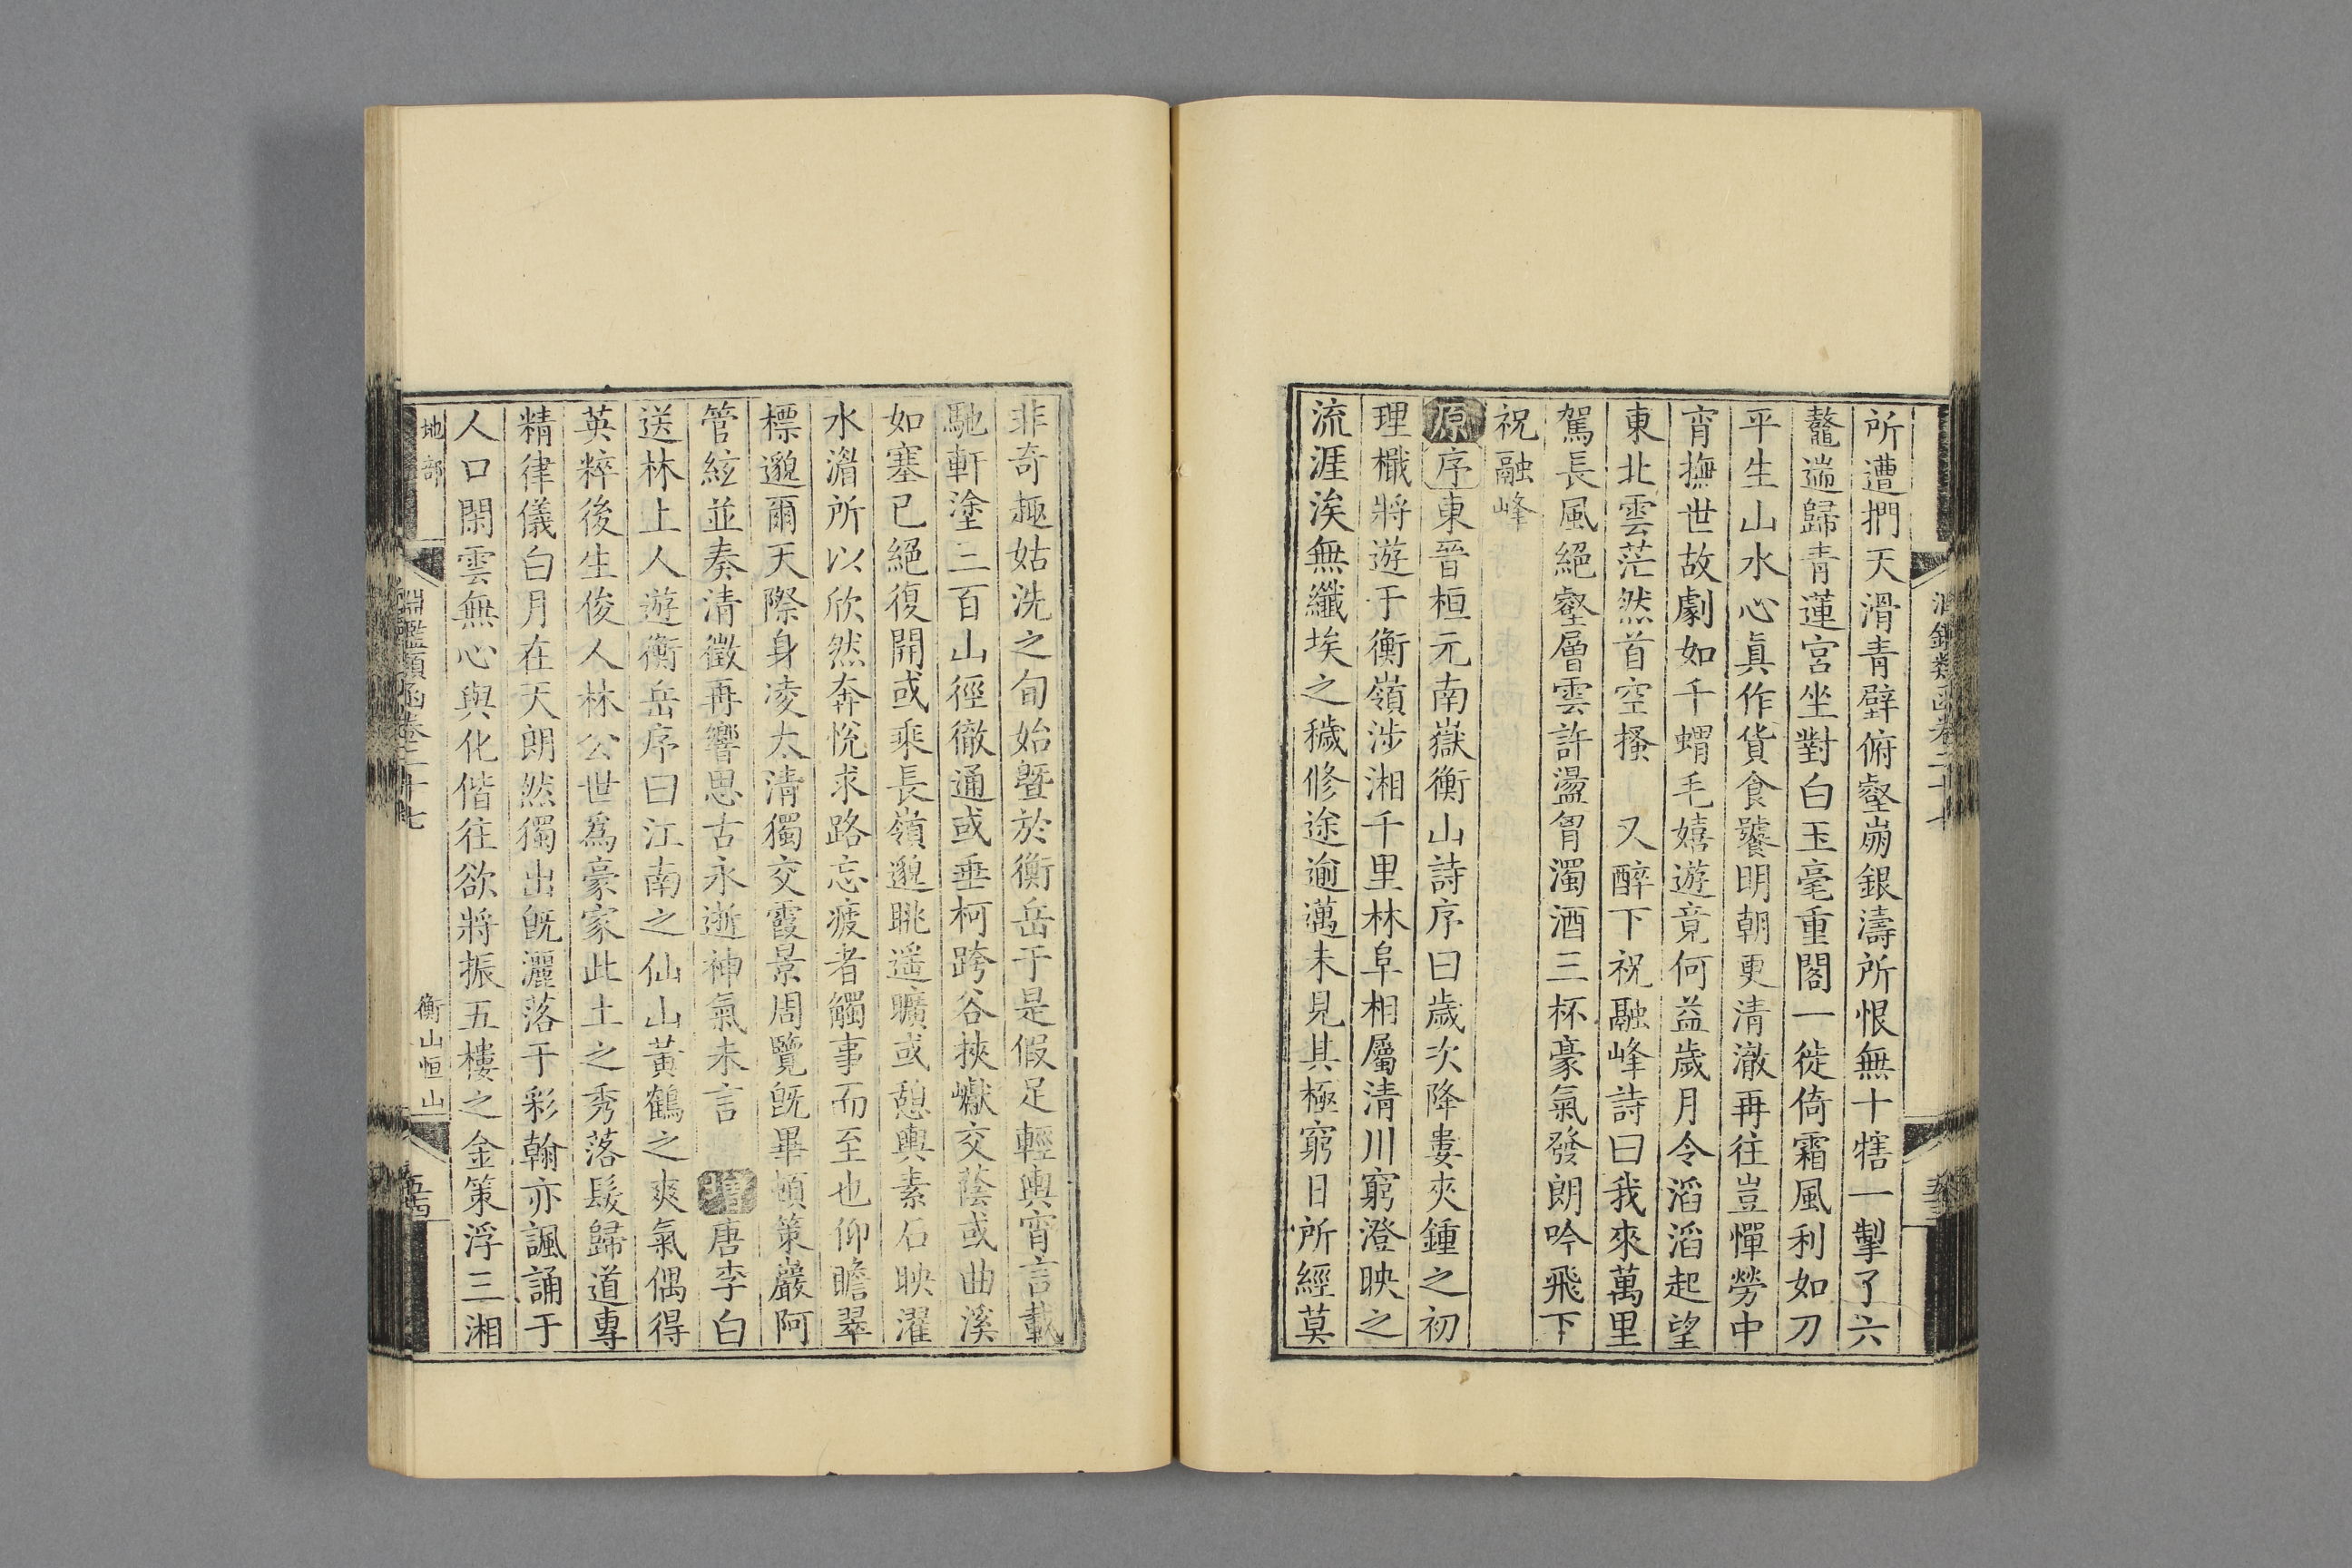 所遭捫天滑青壁俯壑崩銀濤所恨無十犗一掣了六
鼇遄歸青蓮宮坐對白玉毫重閣一徙倚霜風利如刀
平生山水心眞作貨食饕明朝更清澈再往豈憚勞中
宵撫世故劇如千蝟毛嬉遊竟何益歲月令滔滔起望
東北雲茫然首空搔 又醉下祝融峰詩曰我來萬里
駕長風絕壑層雲許盪胷濁酒三杯豪氣發朗吟飛下
祝融峰
原序東晉桓元南嶽衡山詩序曰歲次降婁夾鍾之初
理檝將遊于衡嶺涉湘千里林阜相屬清川窮澄映之
流涯涘無纖埃之穢修途逾邁未見其極窮日所經莫
非奇趣姑洗之旬始曁於衡岳于是假足輕輿宵言載
馳軒塗三百山徑徹通或垂柯跨谷挾巘交蔭或曲溪
如塞已絕復開或乘長嶺邈眺遥曠或憩輿素石映濯
水湄所以欣然奔悅求路忘疲者觸事而至也仰瞻翠
標邈爾天際身凌太清獨交霞景周覽旣畢頓策巖阿
管絃並奏清徵再響思古永逝神氣未言 增唐李白
送林上人遊衡岳序曰江南之仙山黃鶴之爽氣偶得
英粹後生俊人林公世爲豪家此土之秀落髮歸道專
精律儀白月在天朗然獨出旣灑落于彩翰亦諷誦于
人口閑雲無心與化偕往欲將振五樓之金策浮三湘
地部
淵鑑類函卷二十七
衡山恒山